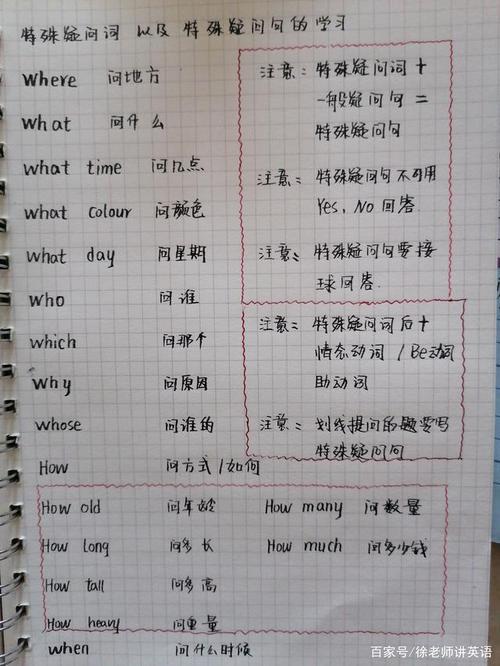 特殊疑问词 以及 特殊疑问句的学习
where 问地方
what 问什么
what time 问几点
what colour 问颜色
what day 问星期
who 问谁
which 问那个
why 问原因
whose 问谁的
How 问方式/如何
注意：特殊疑问词+
一般疑问句=
特殊疑问句
注意：特殊疑问句不可用
Yes, No 回答.
注意：特殊疑问句要接
球回答.
注意：特殊疑问词后+
情态动词/Be动词
助动词
注意：划线提问的题要写
特殊疑问句
How old 问年龄 How many 问数量
How long 问多长 How much 问多少钱
How tall 问多高
How heavy 问重量
when 问什么时候
百家号/徐老师讲英语